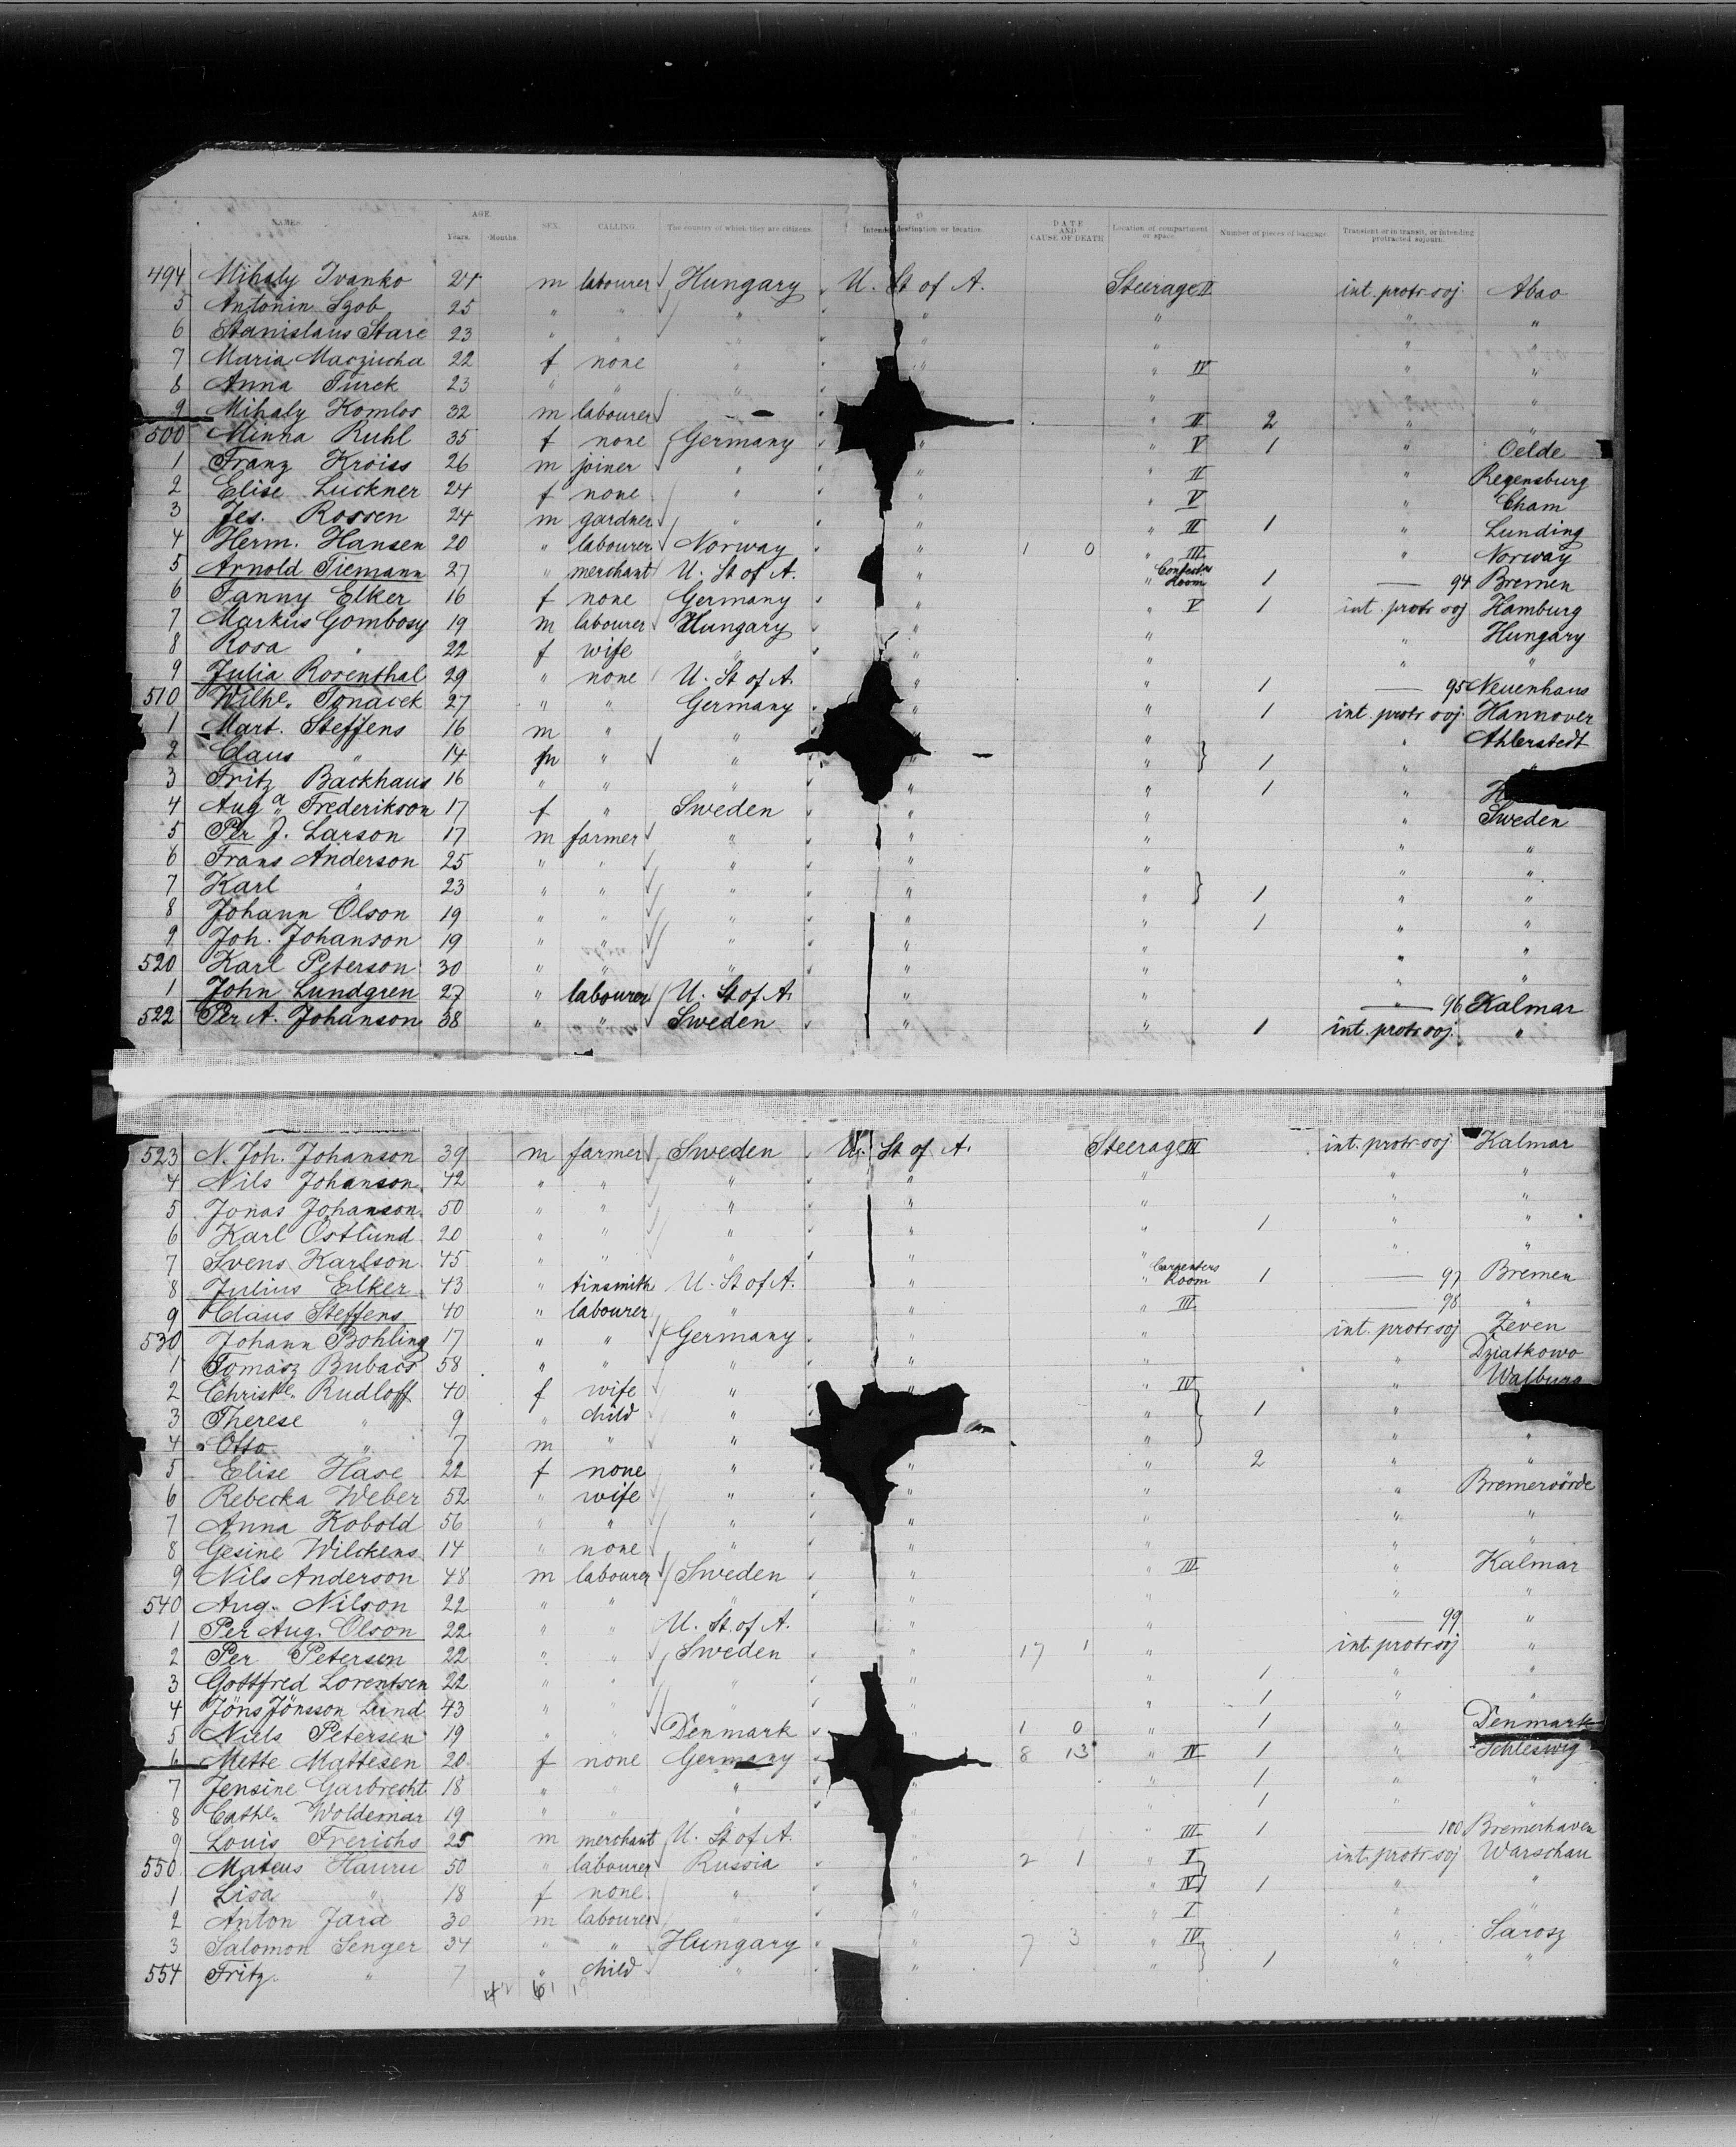 NAMES. AGE. Years. Months. SEX. CALLING. The country of which they are citizens. Intended destination or location. DATE AND CAUSE OF DEATH Location of compartment or space. Number of pieces of baggage. Transient or in transit, or intending protracted sojourn.
494 Mihaly Ivanko 24 m labourer Hungary U. St of A. Steerage II int. protr. soj. Abao
5 Antonin Szob 25 " " " " " " "
6 Stanislaus Stare 23 " " " " " " "
7 Maria Maczucha 22 f none " " " IV " "
8 Anna Turek 23 " " " " " "
9 Mihaly Komlos 32 m labourer " II 2 " "
500 Minna Ruhl 35 f none Germany " " V 1 " Oelde
1 Franz Kroiss 26 m joiner " " " II " Regensburg
2 Elise Luckner 24 f none " " " V " Cham
3 Jes. Rossen 24 m gardner " " " II 1 " Lunding
4 Herm. Hansen 20 " labourer Norway " 1 0 " III " Norway
5 Arnold Tiemann 27 " merchant U. St of A. " " Room 1 — 94 Bremen
6 Fanny Elker 16 f none Germany " " V 1 int. protr soj Hamburg
7 Markus Gombosy 19 m labourer Hungary " " " Hungary
8 Rosa " 22 f wife " " " " "
9 Julia Rosenthal 29 " none U. St of A. " " 1 — 95 Neuenhaus
510 Wilhe. Tonacek 27 " " Germany " " 1 int. protr soj. Hannover
1 Mart. Steffens 16 m " " " " Ahlerstedt
2 Claus " 14 m " " " " 1 " "
3 Fritz Backhaus 16 " " " " " 1 "
4 Auga Frederikson 17 f " Sweden " " " Sweden
5 Per J. Larson 17 m farmer " " " " "
6 Frans Anderson 25 " " " " " " "
7 Karl " 23 " " " " " 1 " "
8 Johann Olson 19 " " " " " 1 " "
9 Joh. Johanson 19 " " " " " " "
520 Karl Peterson 30 " " " " " " "
1 John Lundgren 27 " labourer U. St of A. " " — 96 Kalmar
522 Per A. Johanson 38 " " Sweden " " 1 int. protr soj. "
523 N. Joh. Johanson 39 m farmer Sweden U. St of A. Steerage III int. protr soj Kalmar
4 Nils Johanson 42 " " " " " " "
5 Jonas Johanson 50 " " " " " " "
6 Karl Östlund 20 " " " " " 1 " "
7 Svens Karlson 45 " " " " " " "
8 Julius Elker 43 " tinsmith U. St of A. " " Carpenters Room 1 — 97 Bremen
9 Claus Steffens 40 " labourer " " " III — 98 "
530 Johann Bohling 17 " " Germany " " int. protr soj Zeven
1 Tomasz Bubacs 58 " " " " " " Dziatkowo
2 Christe. Rudloff 40 f wife " " IV " Walburg
3 Therese " 9 " child " " 1 "
4 Otto " 7 m " " " " "
5 Elise Hase 22 f none " " " 2 " "
6 Rebecka Weber 52 " wife " " " " Bremervörde
7 Anna Kobold 56 " " " " " " "
8 Gesine Wilckens 14 " none " " " " "
9 Nils Anderson 48 m labourer Sweden " " III " Kalmar
540 Aug. Nilson 22 " " " " " " "
1 Per Aug. Olson 22 " " U. St. of A. " " — 99 "
2 Per Petersen 22 " " Sweden " 17 1 " int. protr soj "
3 Gottfred Lorentsen 22 " " " " " 1 " "
4 Jöns Jönsson Lund 43 " " " " 1 " "
5 Niels Petersen 19 " " Denmark " 1 0 " 1 " Denmark
6 Mette Mattesen 20 f none Germany 8 13 " IV 1 " Schleswig
7 Jensine Garbrecht 18 " " " " " 1 " "
8 Cathe. Woldemar 19 " " " " " 1 " "
9 Louis Frerichs 25 m merchant U. St of A. " " III 1 — 100 Bremerhaven
550 Mateus Hauru 50 " labourer Russia " 2 1 " I int. protr soj Warschau
1 Lisa " 18 f none " " " IV 1 " "
2 Anton Jara 30 m labourer " " " I " "
3 Salomon Senger 34 " " Hungary " 7 3 " IV " Sarosz
554 Fritz " 7 " child " " " 1 " "